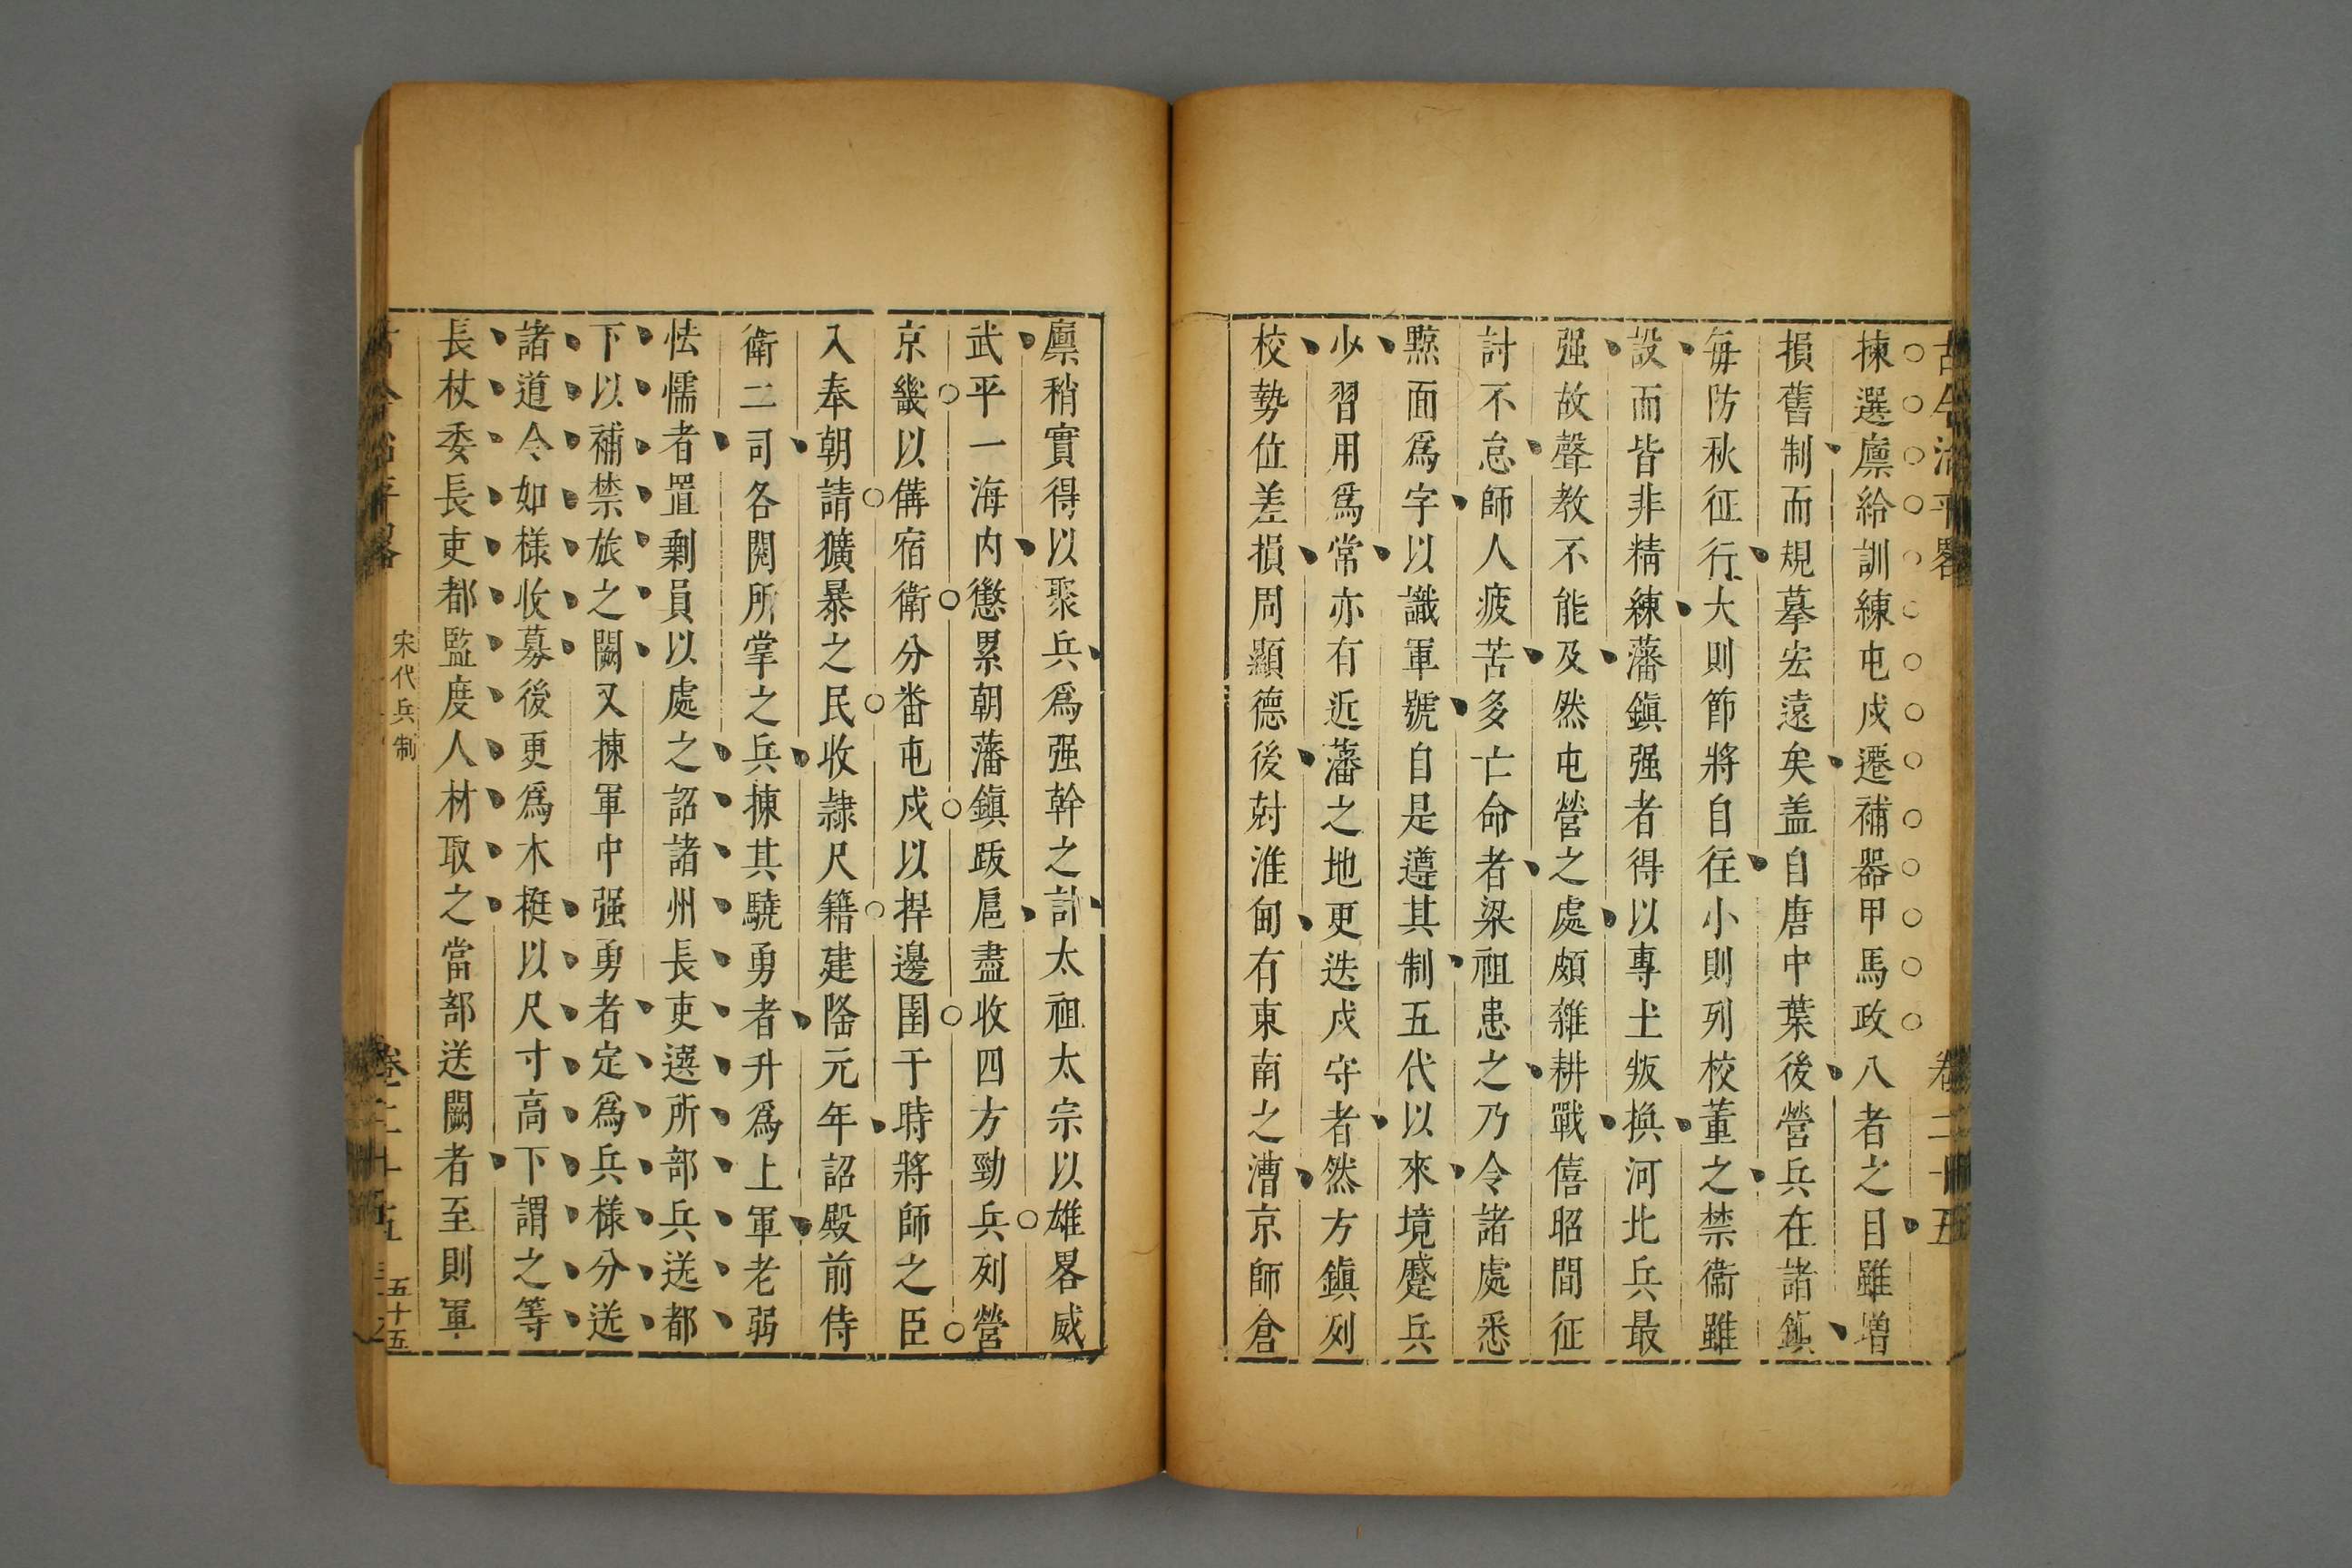 古今治平畧 卷二十五
揀選廪給訓練屯戍遷補器甲馬政八者之目雖增
損舊制而規摹宏遠矣盖自唐中葉後營兵在諸鎮
每防秋征行大則節將自往小則列校董之禁衞雖
設而皆非精練藩鎮强者得以專土叛換河北兵最
强故聲教不能及然屯營之處頗雜耕戰僖昭間征
討不怠師人疲苦多亡命者梁祖患之乃令諸處悉
黥面爲字以識軍號自是遵其制五代以來境蹙兵
少習用爲常亦有近藩之地更迭戍守者然方鎮列
校勢位差損周顯德後尅淮甸有東南之漕京師倉
廪稍實得以聚兵爲强幹之計太祖太宗以雄畧威
武平一海内懲累朝藩鎮跋扈盡收四方勁兵列營
京畿以備宿衛分畨屯戍以捍邊圉于時將師之臣
入奉朝請獷暴之民收隷尺籍建隆元年詔殿前侍
衛二司各閱所掌之兵揀其驍勇者升爲上軍老弱
怯懦者置剩員以處之詔諸州長吏選所部兵送都
下以補禁旅之闕又揀軍中强勇者定爲兵樣分送
諸道令如樣收募後更爲木梃以尺寸高下謂之等
長杖委長吏都監度人材取之當部送闕者至則軍
宋代兵制 卷二十五 五十五